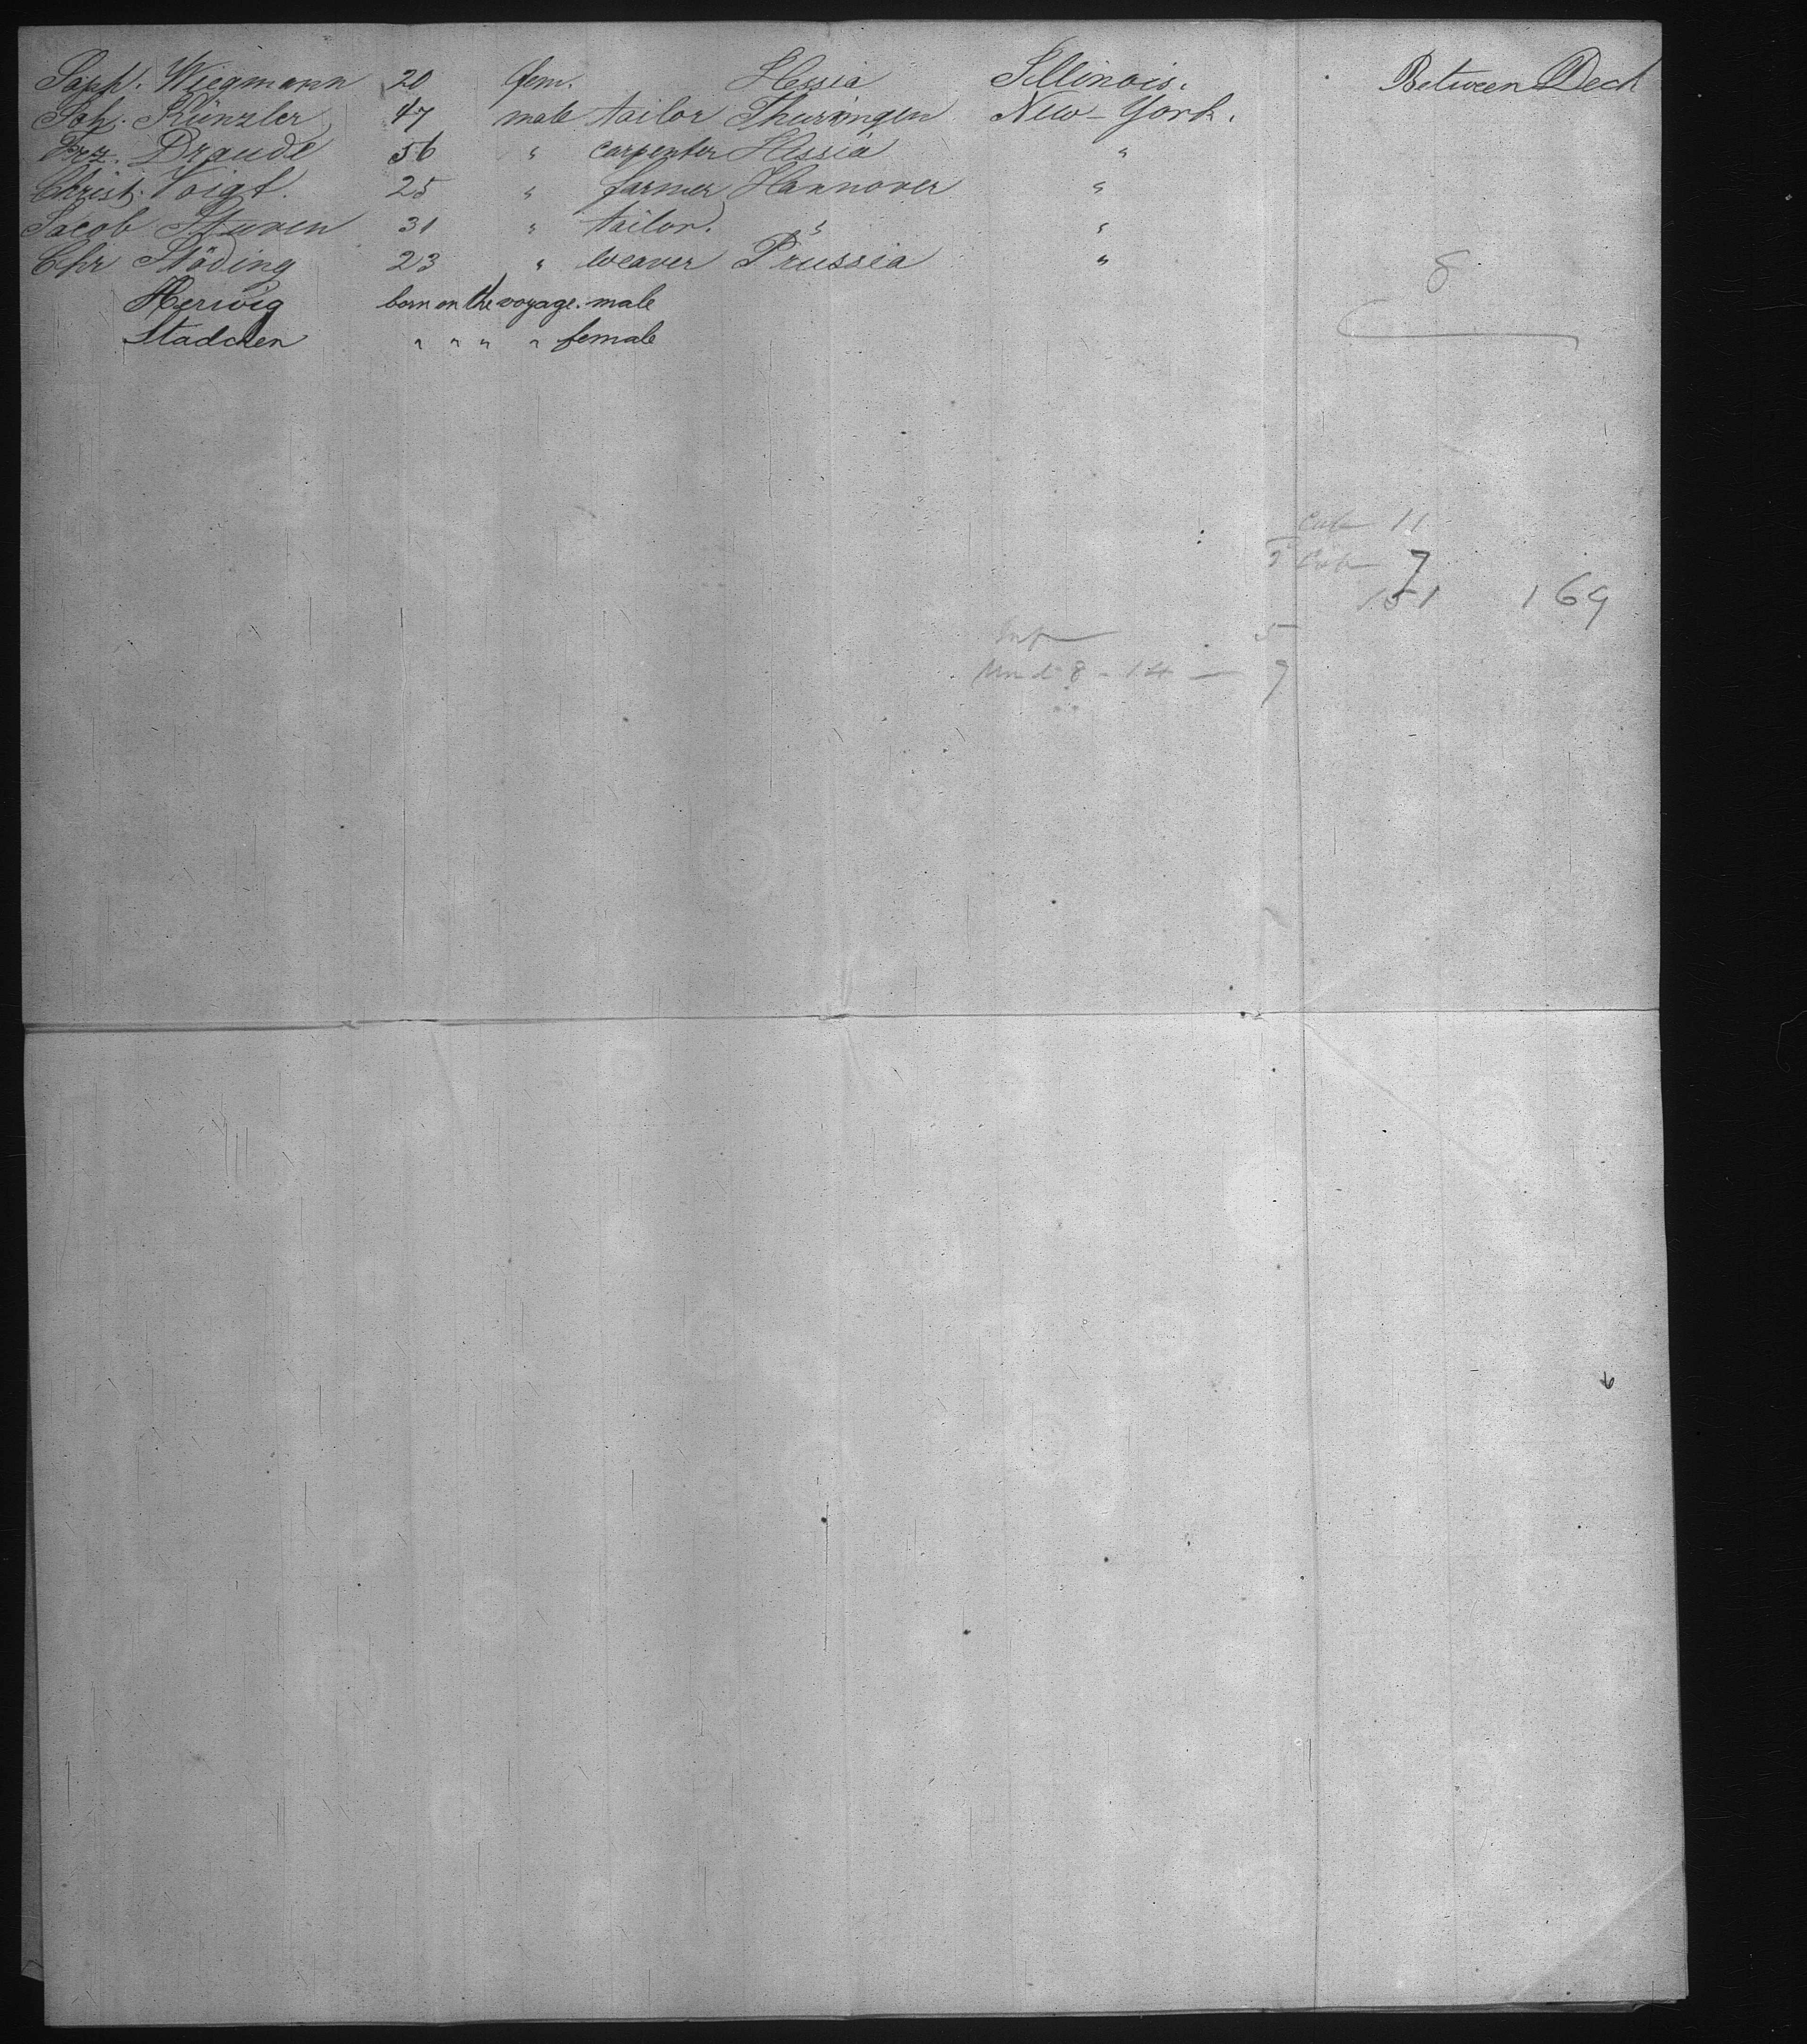 Soph. Wiegmann 20 fem. Hessia Illinois. Between Deck
Joh. Künzler 47 male tailor Thuringen New-York.
Frz. Draude 56 " carpenter Hessia "
Christ. Voigt. 25 " farmer Hannover "
Jacob Stuven 31 " tailor. " "
Chr Stöding 23 " weaver Prussia "
8
Herwig born on the voyage. male
Stadchen " " " " female
Cab 11
2 Cab 7
151 169
Inf 5
Und 8 - 14 — 9